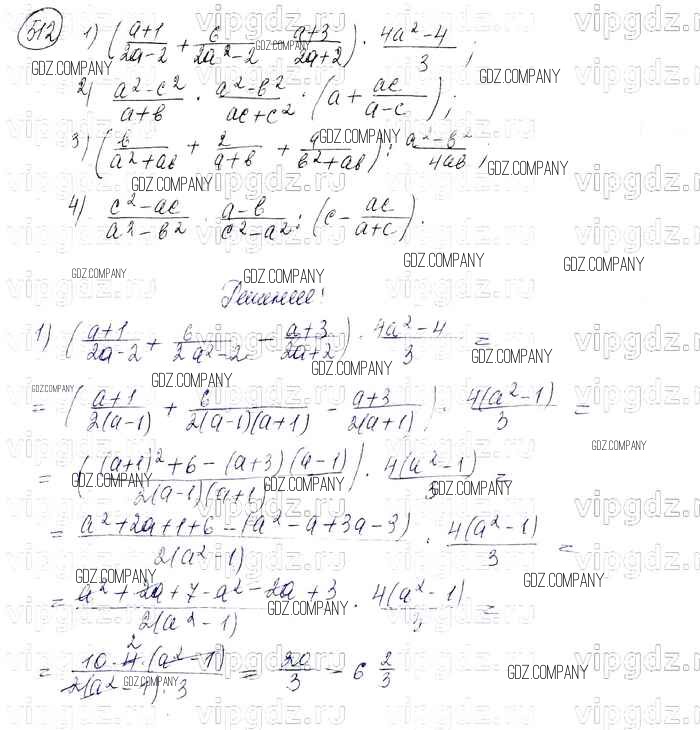 512 1) ((a+1)/(2a-2) + 6/(2a²-2) - (a+3)/(2a+2)) · (4a²-4)/3 ;
2) (a²-c²)/(a+b) · (a²-b²)/(ac+c²) · (a + ac/(a-c)) ;
3) (b/(a²+ab) + 2/(a+b) + a/(b²+ab)) : (a²-b²)/4ab ;
4) (c²-ac)/(a²-b²) · (a-b)/(c²-a²) : (c - ac/(a+c)).
Решение:
1) ((a+1)/(2a-2) + 6/(2a²-2) - (a+3)/(2a+2)) · (4a²-4)/3 =
= ((a+1)/2(a-1) + 6/2(a-1)(a+1) - (a+3)/2(a+1)) · 4(a²-1)/3 =
= (((a+1)²+6-(a+3)(a-1))/2(a-1)(a+1)) · 4(a²-1)/3 =
= (a²+2a+1+6-(a²-a+3a-3))/2(a²-1) · 4(a²-1)/3 =
= (a²+2a+7-a²-2a+3)/2(a²-1) · 4(a²-1)/3 =
= 10·4²·(a²-1)/2(a²-1)·3 = 20/3 = 6 2/3
GDZ.COMPANY
vipgdz.ru